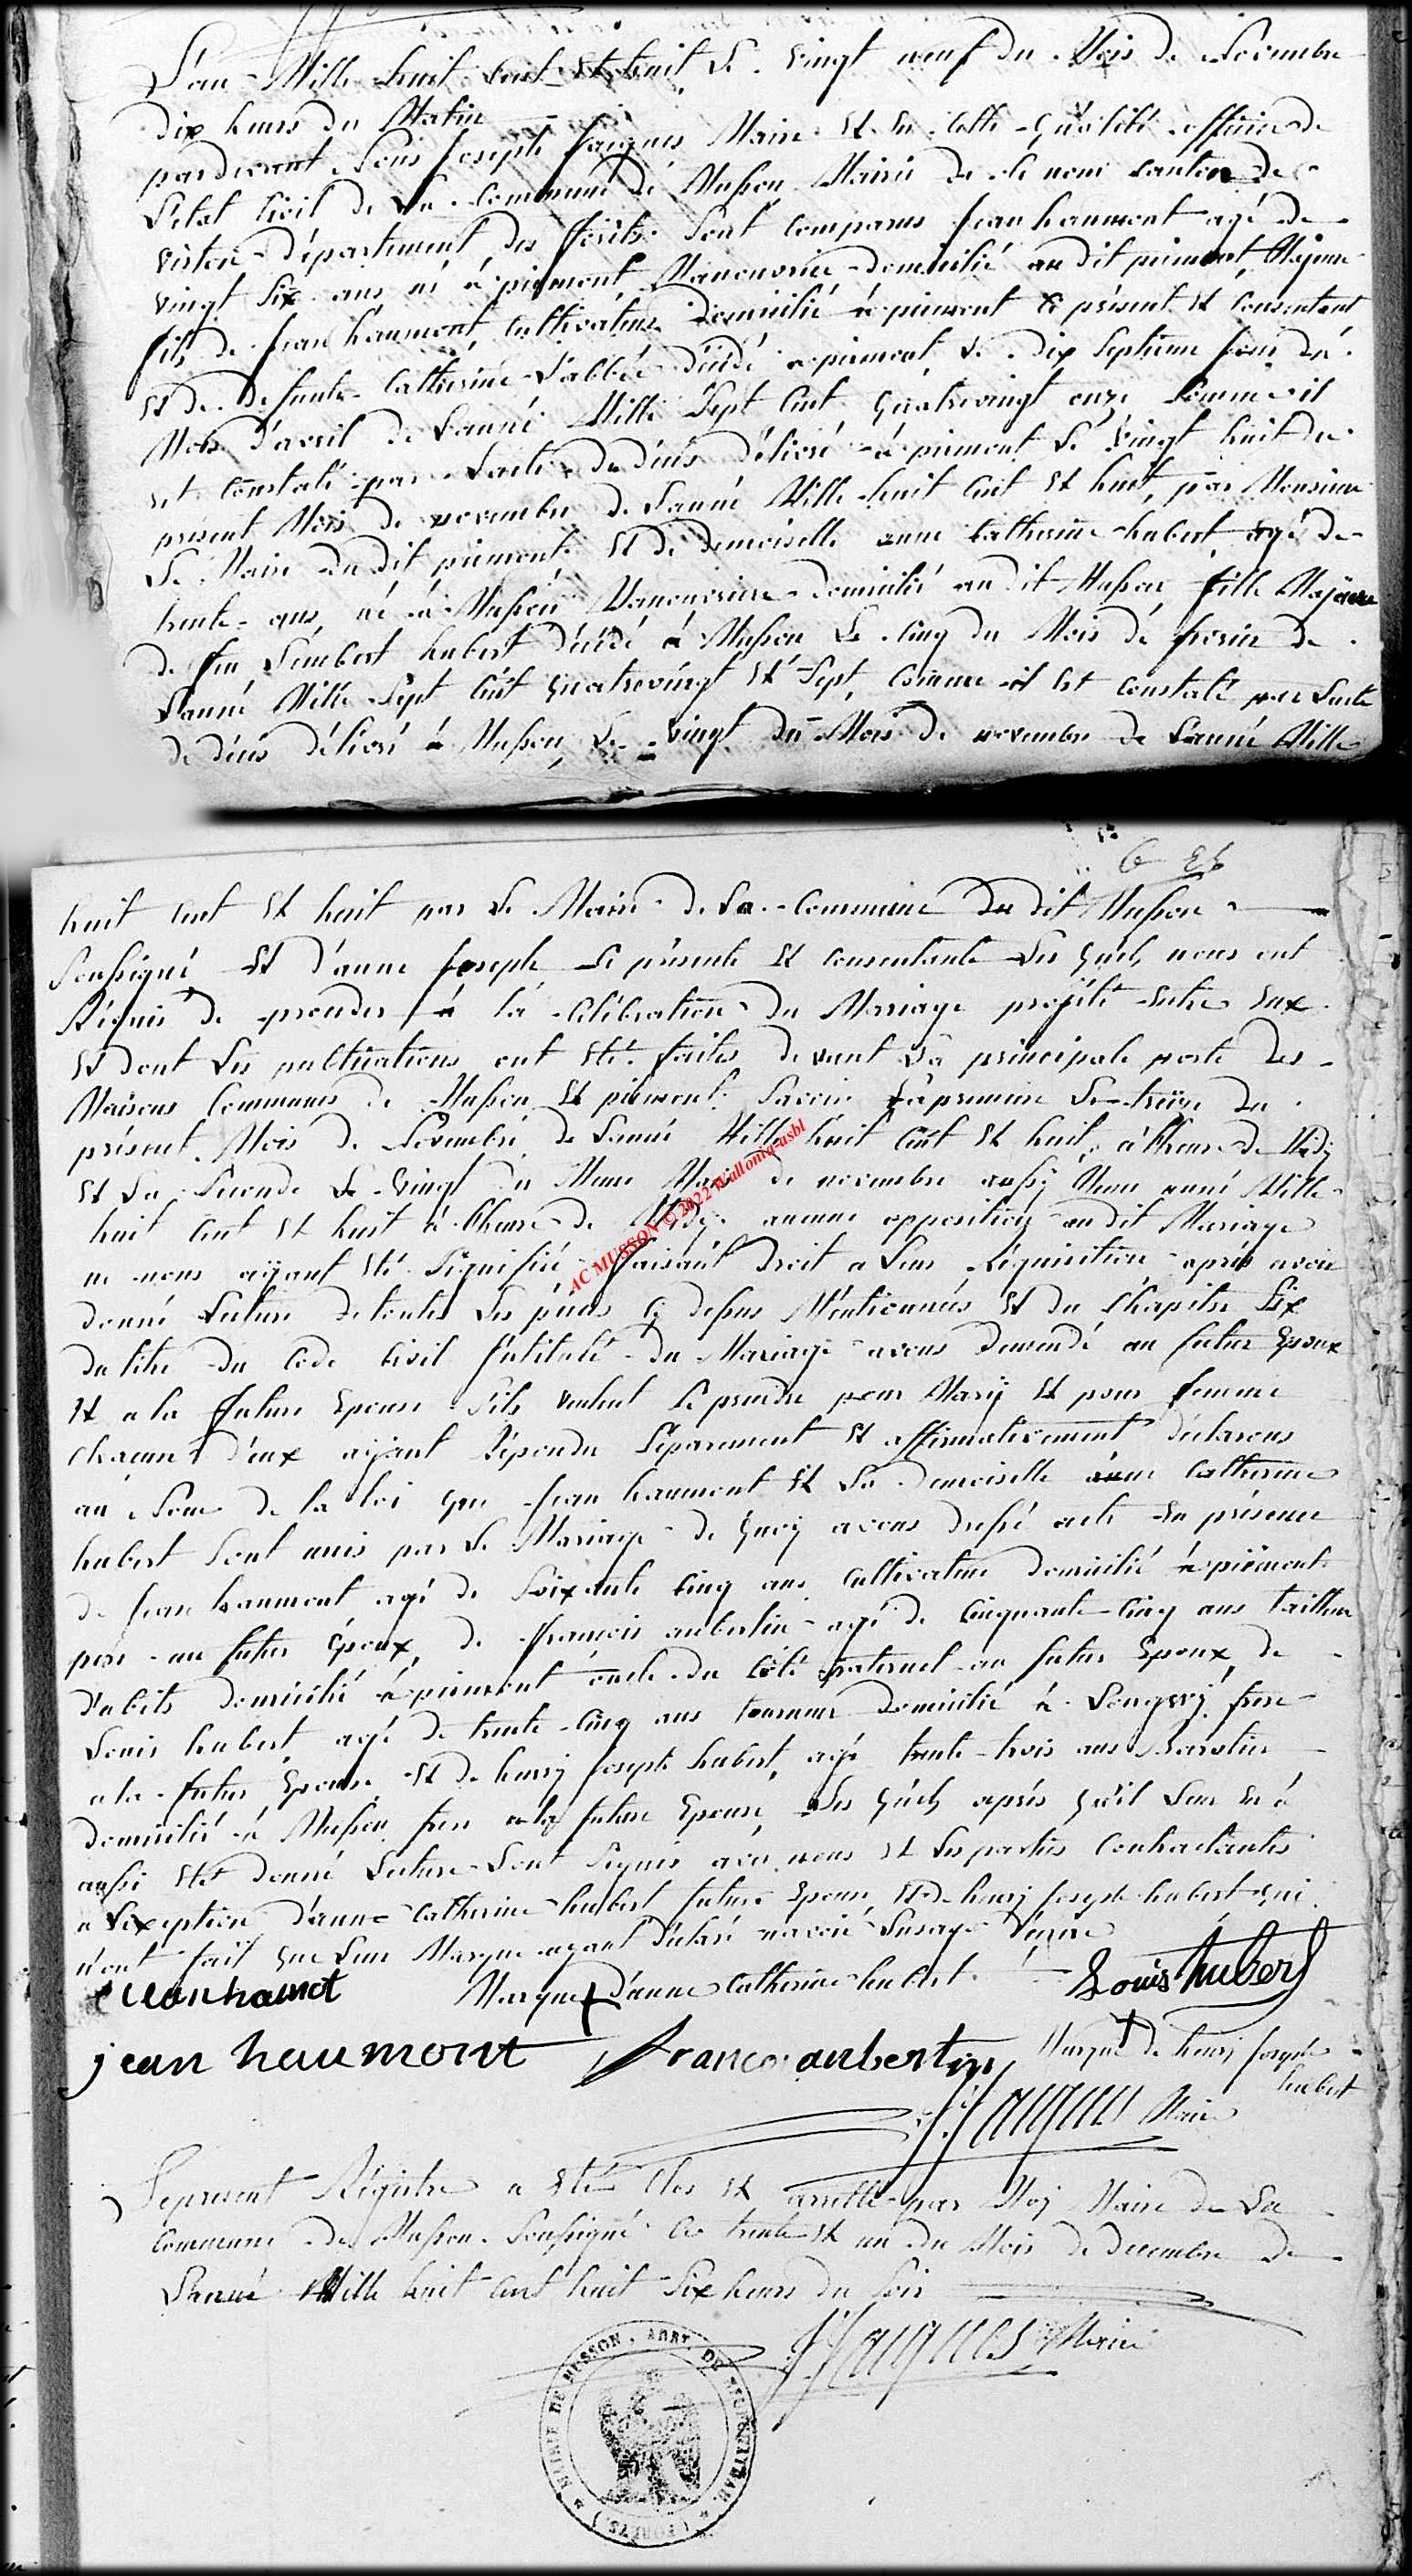 L'an Mille huit Cent et huit le vingt neuf du Mois de Novembre
Dix heures du Matin
pardevant Nous Joseph Jacques Maire et en cette qualité officier de
l'état Civil de la Commune de Musson Mairie de ce nom Canton de
virton département des forêts Sont comparus jean haumont agé de
vingt Six ans né à piémont Manouvrier domicilié au dit piémont, Majeur
fils de jean haumont, Cultivateur domicilié à piémont cy présent et Consentant
et de defunte Catherine Labbée décédé a piemont, le dix Septieme jour du
Mois d'avril de Lanné Mille Sept Cent quatrevingt onze Comme il
est Constaté par Lacte de décés délivré à piemont Le vingt huit du
present Mois de novembre de Lanné Mille huit Cent et huit, par Monsieur
Le Maire du dit piemont et de demoiselle anne Catherine hubert agé de
trente ans, né à Musson Manouvriere domicilié au dit Musson fille Majeure
de feu Lambert hubert décédé à Musson Le Cinq du Mois de fevrier de
Lanné Mille Sept Cent quatrevingt et Sept, Comme il est Constaté par Lacte
de décés délivré à Musson, Le vingt du Mois de novembre de Lanné Mille
huit Cent et huit par Le Maire de La Commune du dit Musson
Soussigné et d'anne joseph ce présente et Consentante Les quels nous ont
Réquis de proceder à la célébration du Mariage projété entre Eux
et dont Les publications ont été faites devant La principale porte des
Maisons Communes de Musson et piémont Savoir La premiere Le treize du
présent Mois de Novembre de Lanné Mille huit Cent et huit, à Lheure de Midy
et La Seconde Le vingt du Meme Mois de novembre aussy Meme anné Mille
huit Cent et huit à Lheure de Midy. aucune opposition au dit Mariage
ne nous ayant été Signifiée, faisant droit a Leur Réquisition après avoir
donné Lecture de toutes Les piéces cy dessus Mentionnées et du Chapitre Six
du titre du Code Civil Intitulé du Mariage avons demendé au futur Epoux
et a la future Epouse S'ils veulent Se prendre pour Mary et pour femme
chacun d'eux ayant Répondu Séparement et affirmativement déclarons
au Nom de la loi que jean haumont et La demoiselle anne Catherine
hubert Sont unis par Le Mariage de quoy avons dressé acte en présence
de jean haumont agé de Soixante Cinq ans Cultivateur domicilié à piémont
pere au futur époux, de françois aubertin agé de Cinquante Cinq ans tailleur
d'abits domicilié à piemont oncle du Côté maternel au futur Epoux, de
Louis hubert agé de trente Cinq ans tourneur domicilié à Longwy frere
a la future Epouse et de henry joseph hubert, agé trente trois ans
domicilié à Musson frere a la future Epouse, Les quels après qu'il Leur en à
aussi été donné Lecture Sont Signés avec nous et Les parties Contractantes
a L'exception d'anne Catherine hubert future Epouse, et de henry joseph hubert qui
n'ont fait que Leur Marque ayant déclaré n'avoir Lusage décrire
Marque d'anne Catherine hubert Louis Hubert
jean haumont franço aubertin Marque de henry joseph
hubert
J Jacques Maire
Le present Régistre a été Clos et arretté par Moy Maire de La
Commune de Musson Soussigné Ce trente et un du Mois de decembre de
Lanné Mille huit Cent huit Six heures du Soir
J Jacques Maire
MAIRIE DE MUSSON, ARRT. DE NEUFCHATEAU (FORETS)
AC MUSSON © 2022 Wallonia-asbl